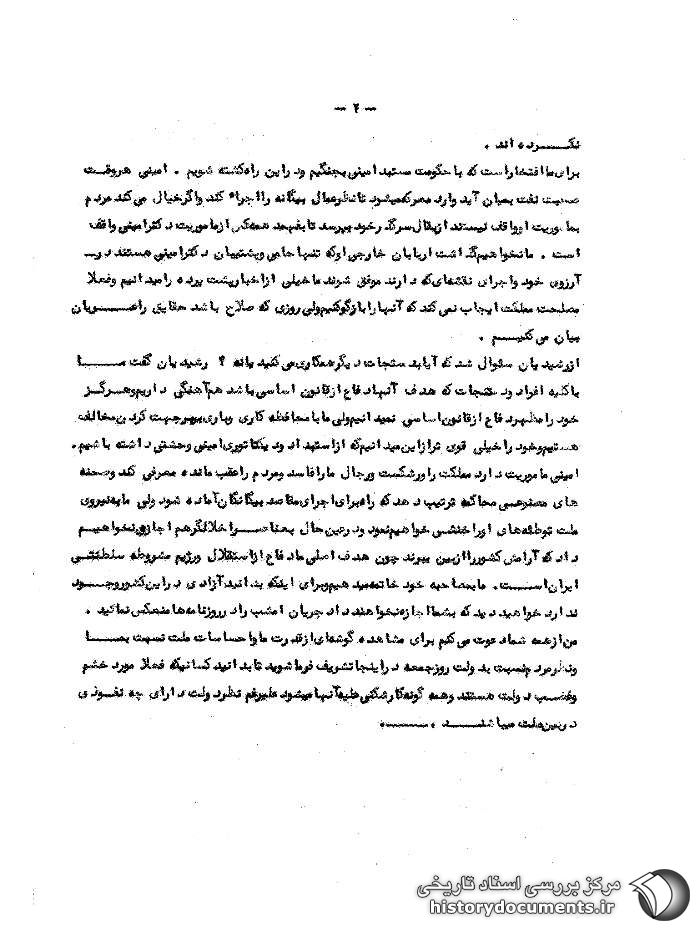 — ۲ —
نکـــرده اند .
برای ما افتخار است که با حکومت مستبد امینی بجنگیم و در این راه کشته شویم . امینی هر وقت
صحبت نفت بمیان آید وارد معرکه میشود تا نظر عمال بیگانه را اجراء کند و اگر خیال می کند مردم
بماموریت او واقف نیستند از بقال سرگذر خود بپرسد تا بفهمد همه کس از ماموریت دکتر امینی واقف
است . ما نخواهیم گذاشت اربابان خارجی او که تنها حامی و پشتیبان دکتر امینی هستند در
آرزوی خود و اجرای نقشه ای که دارند موفق شوند ما خیلی از اخبار پشت پرده را میدانیم و فعلا
مصلحت مملکت ایجاب نمی کند که آنها را بازگو کنیم ولی روزی که صلاح باشد حقایق را عـــریان
بیان می کنیـــم .
از رشیدیان سئوال شد که آیا با دستجات دیگر همکاری می کنید یا نه ؟ رشیدیان گفت مـــا
با کلیه افراد و دستجات که هدف آنها دفاع از قانون اساسی باشد هم آهنگی داریم و هرگـــز
خود را مظهر دفاع از قانون اساسی نمیدانیم ولی ما با محافظه کاری و پاری بهر جهت کردن مخالف
هستیم و خود را خیلی قوی تر از این میدانیم که از استبداد و دیکتاتوری امینی وحشتی داشته باشیم .
امینی ماموریت دارد مملکت را ورشکست و رجال ما را فاسد و مردم را عقب مانده معرفی کند و صحنه
های مصنوعی محاکمه ترتیب دهد که راه برای اجرای مقاصد بیگانگان آماده شود ولی ما به نیروی
ملت توطئه های او را خنثی خواهیم نمود و در عین حال بعناصـــر اخلالگر هم اجازه نخواهیـــم
داد که آرامش کشور را از بین ببرند چون هدف اصلی ما دفاع از استقلال و رژیم مشروطه سلطنتی
ایران اســـت . ما بمصاحبه خود خاتمه میدهیم و برای اینکه بدانید آزادی در این کشور وجـــود
ندارد خواهید دید که بشما اجازه نخواهند داد جریان امشب را در روزنامه ها منعکس نمائید .
من از همه شما دعوت می کنم برای مشاهده گوشه ای از قدرت ما و احساسات ملت نسبت بمـــا
و نظر مردم نسبت بدولت روز جمعه در اینجا تشریف فرما شوید تا بدانید کسانیکه فعلا مورد خشم
و غضب دولت هستند و همه گونه کارشکنی علیه آنها میشود علیرغم نظر دولت دارای چه نفوذی
در بین ملت میباشنـــد .
مرکز بررسی اسناد تاریخی
historydocuments.ir